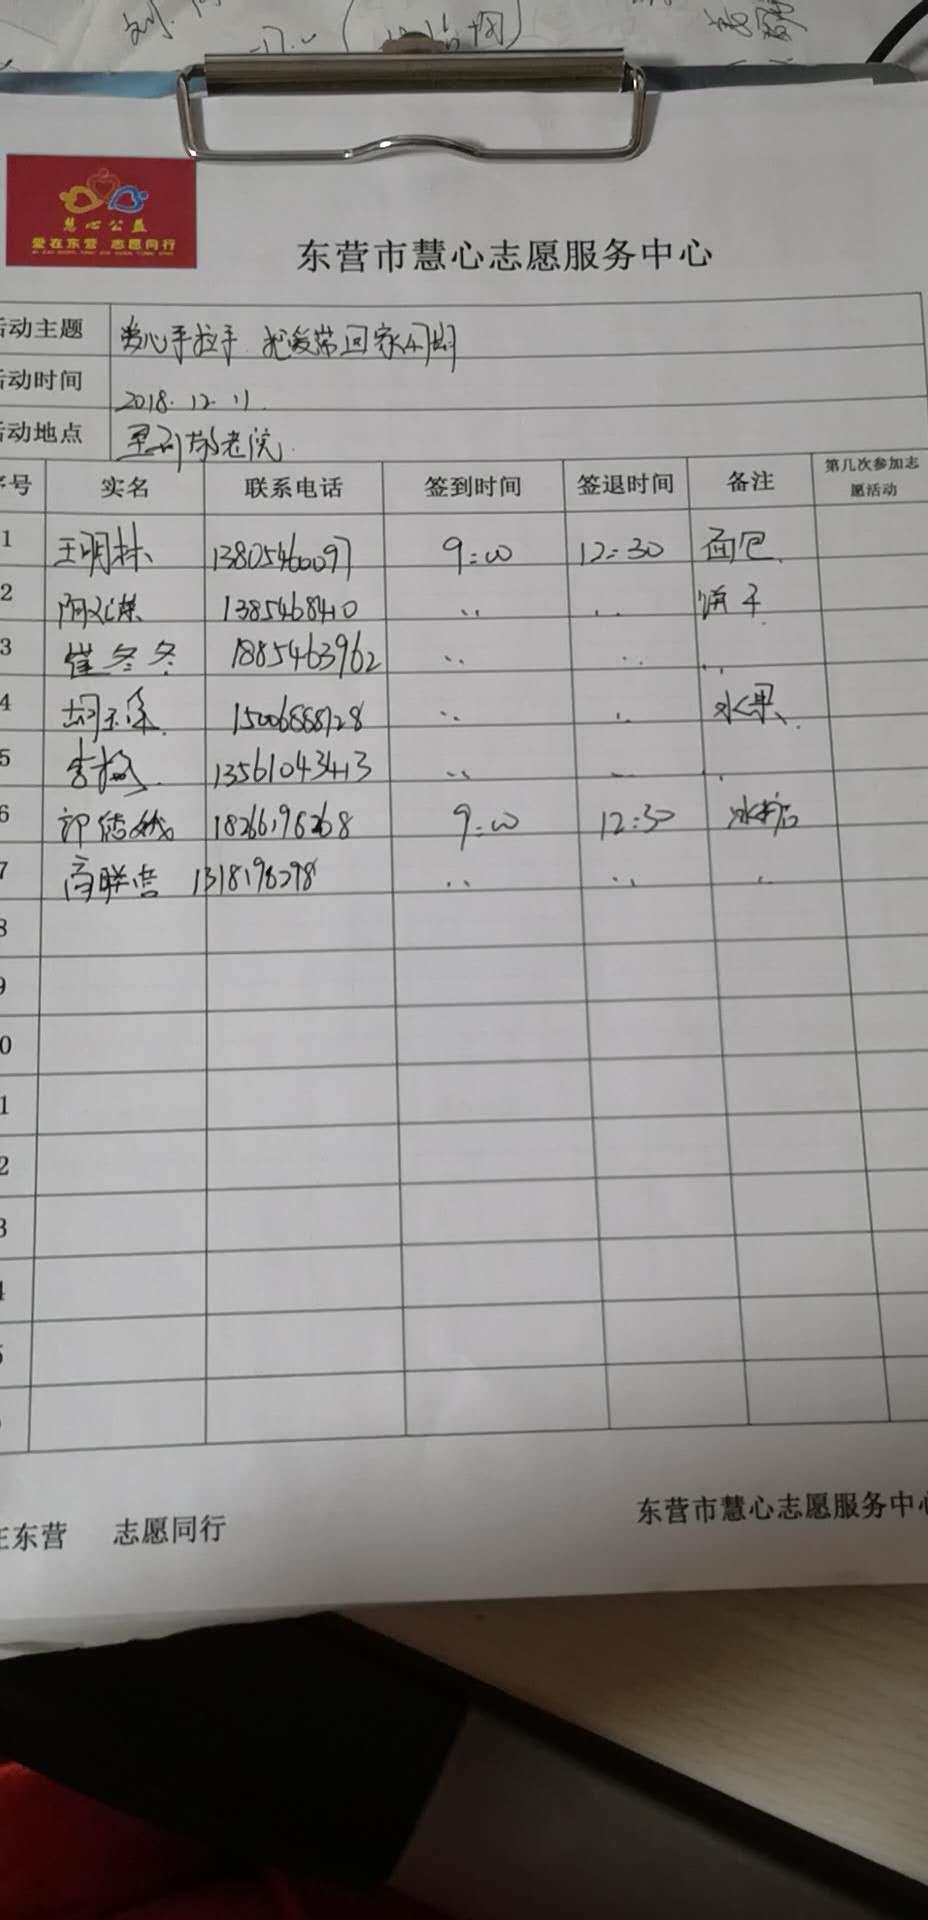 慧心公益
爱在东营 志愿同行
东营市慧心志愿服务中心
活动主题 爱心手拉手 把爱带回家
活动时间 2018.12.11.
活动地点 垦利敬老院
序号 实名 联系电话 签到时间 签退时间 备注 第几次参加志愿活动
1 王明林 13805460097 9:00 12:30 面包
2 1385468410 〃 〃
3 崔冬冬 1885463962 〃 〃 〃
4 胡玉条 15006888728 〃 〃 水果
5 13561043413 〃 〃 〃
6 18266196268 9:00 12:30
7 高联营 1318196298 〃 〃 〃
8
9
0
1
2
3
4
5
在东营 志愿同行
东营市慧心志愿服务中心